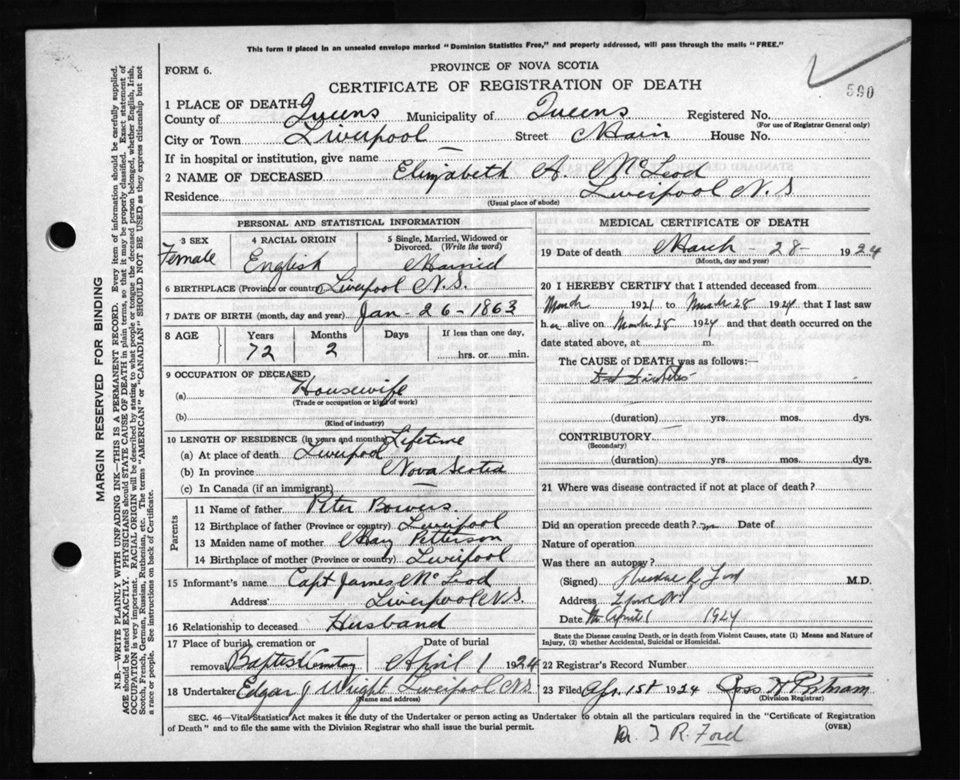 This form if placed in an unsealed envelope marked "Dominion Statistics Free," and property addressed, will pass through the mails "FREE."
PROVINCE OF NOVA SCOTIA
FORM 6.
CERTIFICATE OF REGISTRATION OF DEATH
590
1 PLACE OF DEATH
County of Queens Municipality of Queens Registered No.
(For use of Registrar General only)
City or Town Liverpool Street Main House No.
If in hospital or institution, give name —
2 NAME OF DECEASED Elizabeth A. McLeod
Residence Liverpool N.S
(Usual place of abode)
PERSONAL AND STATISTICAL INFORMATION
3 SEX Female
4 RACIAL ORIGIN English
5 Single, Married, Widowed or Divorced. (Write the word) Married
6 BIRTHPLACE (Province or country) Liverpool N.S.
7 DATE OF BIRTH (month, day and year) Jan - 26 - 1863
8 AGE Years 72 Months 2 Days If less than one day, hrs. or min.
9 OCCUPATION OF DECEASED
(a) Housewife
(Trade or occupation or kind of work)
(b)
(Kind of industry)
10 LENGTH OF RESIDENCE (in years and months) Lifetime
(a) At place of death Liverpool
(b) In province Nova Scotia
(c) In Canada (if an immigrant) —
Parents
11 Name of father Peter Bowers.
12 Birthplace of father (Province or country) Liverpool
13 Maiden name of mother Mary Patterson
14 Birthplace of mother (Province or country) Liverpool
15 Informant's name Capt James McLeod
Address Liverpool N.S.
16 Relationship to deceased Husband
17 Place of burial, cremation or removal Baptist Cemetery
Date of burial April 1 1924
18 Undertaker Edgar J Wright Liverpool N.S
(Name and address)
MEDICAL CERTIFICATE OF DEATH
19 Date of death March - 28 - 1924
(Month, day and year)
20 I HEREBY CERTIFY that I attended deceased from
March 1921 to March 28 1924 that I last saw
her alive on March 28 1924 and that death occurred on the
date stated above, at m.
The CAUSE of DEATH was as follows:—
Diabetes
(duration) yrs. mos. dys.
CONTRIBUTORY
(Secondary)
(duration) yrs. mos. dys.
21 Where was disease contracted if not at place of death?
Did an operation precede death? no Date of
Nature of operation
Was there an autopsy?
(Signed) Ford M.D.
Address
Date April 1 1924
State the Disease causing Death, or in death from Violent Causes, state (1) Means and Nature of
Injury, (2) whether Accidental, Suicidal or Homicidal.
22 Registrar's Record Number
23 Filed Apr 1st 1924
(Division Registrar)
SEC. 46—Vital Statistics Act makes it the duty of the Undertaker or person acting as Undertaker to obtain all the particulars required in the "Certificate of Registration
of Death" and to file the same with the Division Registrar who shall issue the burial permit.
(OVER)
Dr. T R. Ford
MARGIN RESERVED FOR BINDING
N.B.—WRITE PLAINLY WITH UNFADING INK—THIS IS A PERMANENT RECORD. Every item of information should be carefully supplied.
AGE should be stated EXACTLY. PHYSICIANS should STATE CAUSE OF DEATH in plain terms, so that it may be properly classified. Exact statement of
OCCUPATION is very important. RACIAL ORIGIN will be described by stating to what people or tongue the deceased person belonged, whether English, Irish,
Scotch, French, German, Russian, Ruthenian, etc. The terms "AMERICAN" or "CANADIAN" SHOULD NOT BE USED as they express citizenship but not
a race or people. See instructions on back of Certificate.